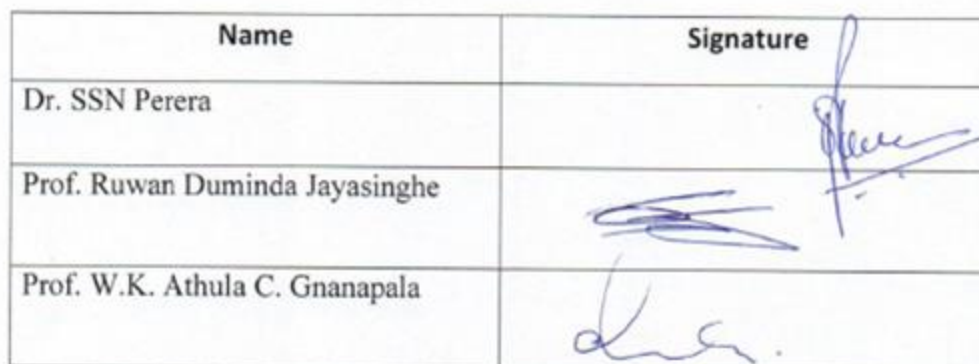 Name Signature
Dr. SSN Perera
Prof. Ruwan Duminda Jayasinghe
Prof. W.K. Athula C. Gnanapala